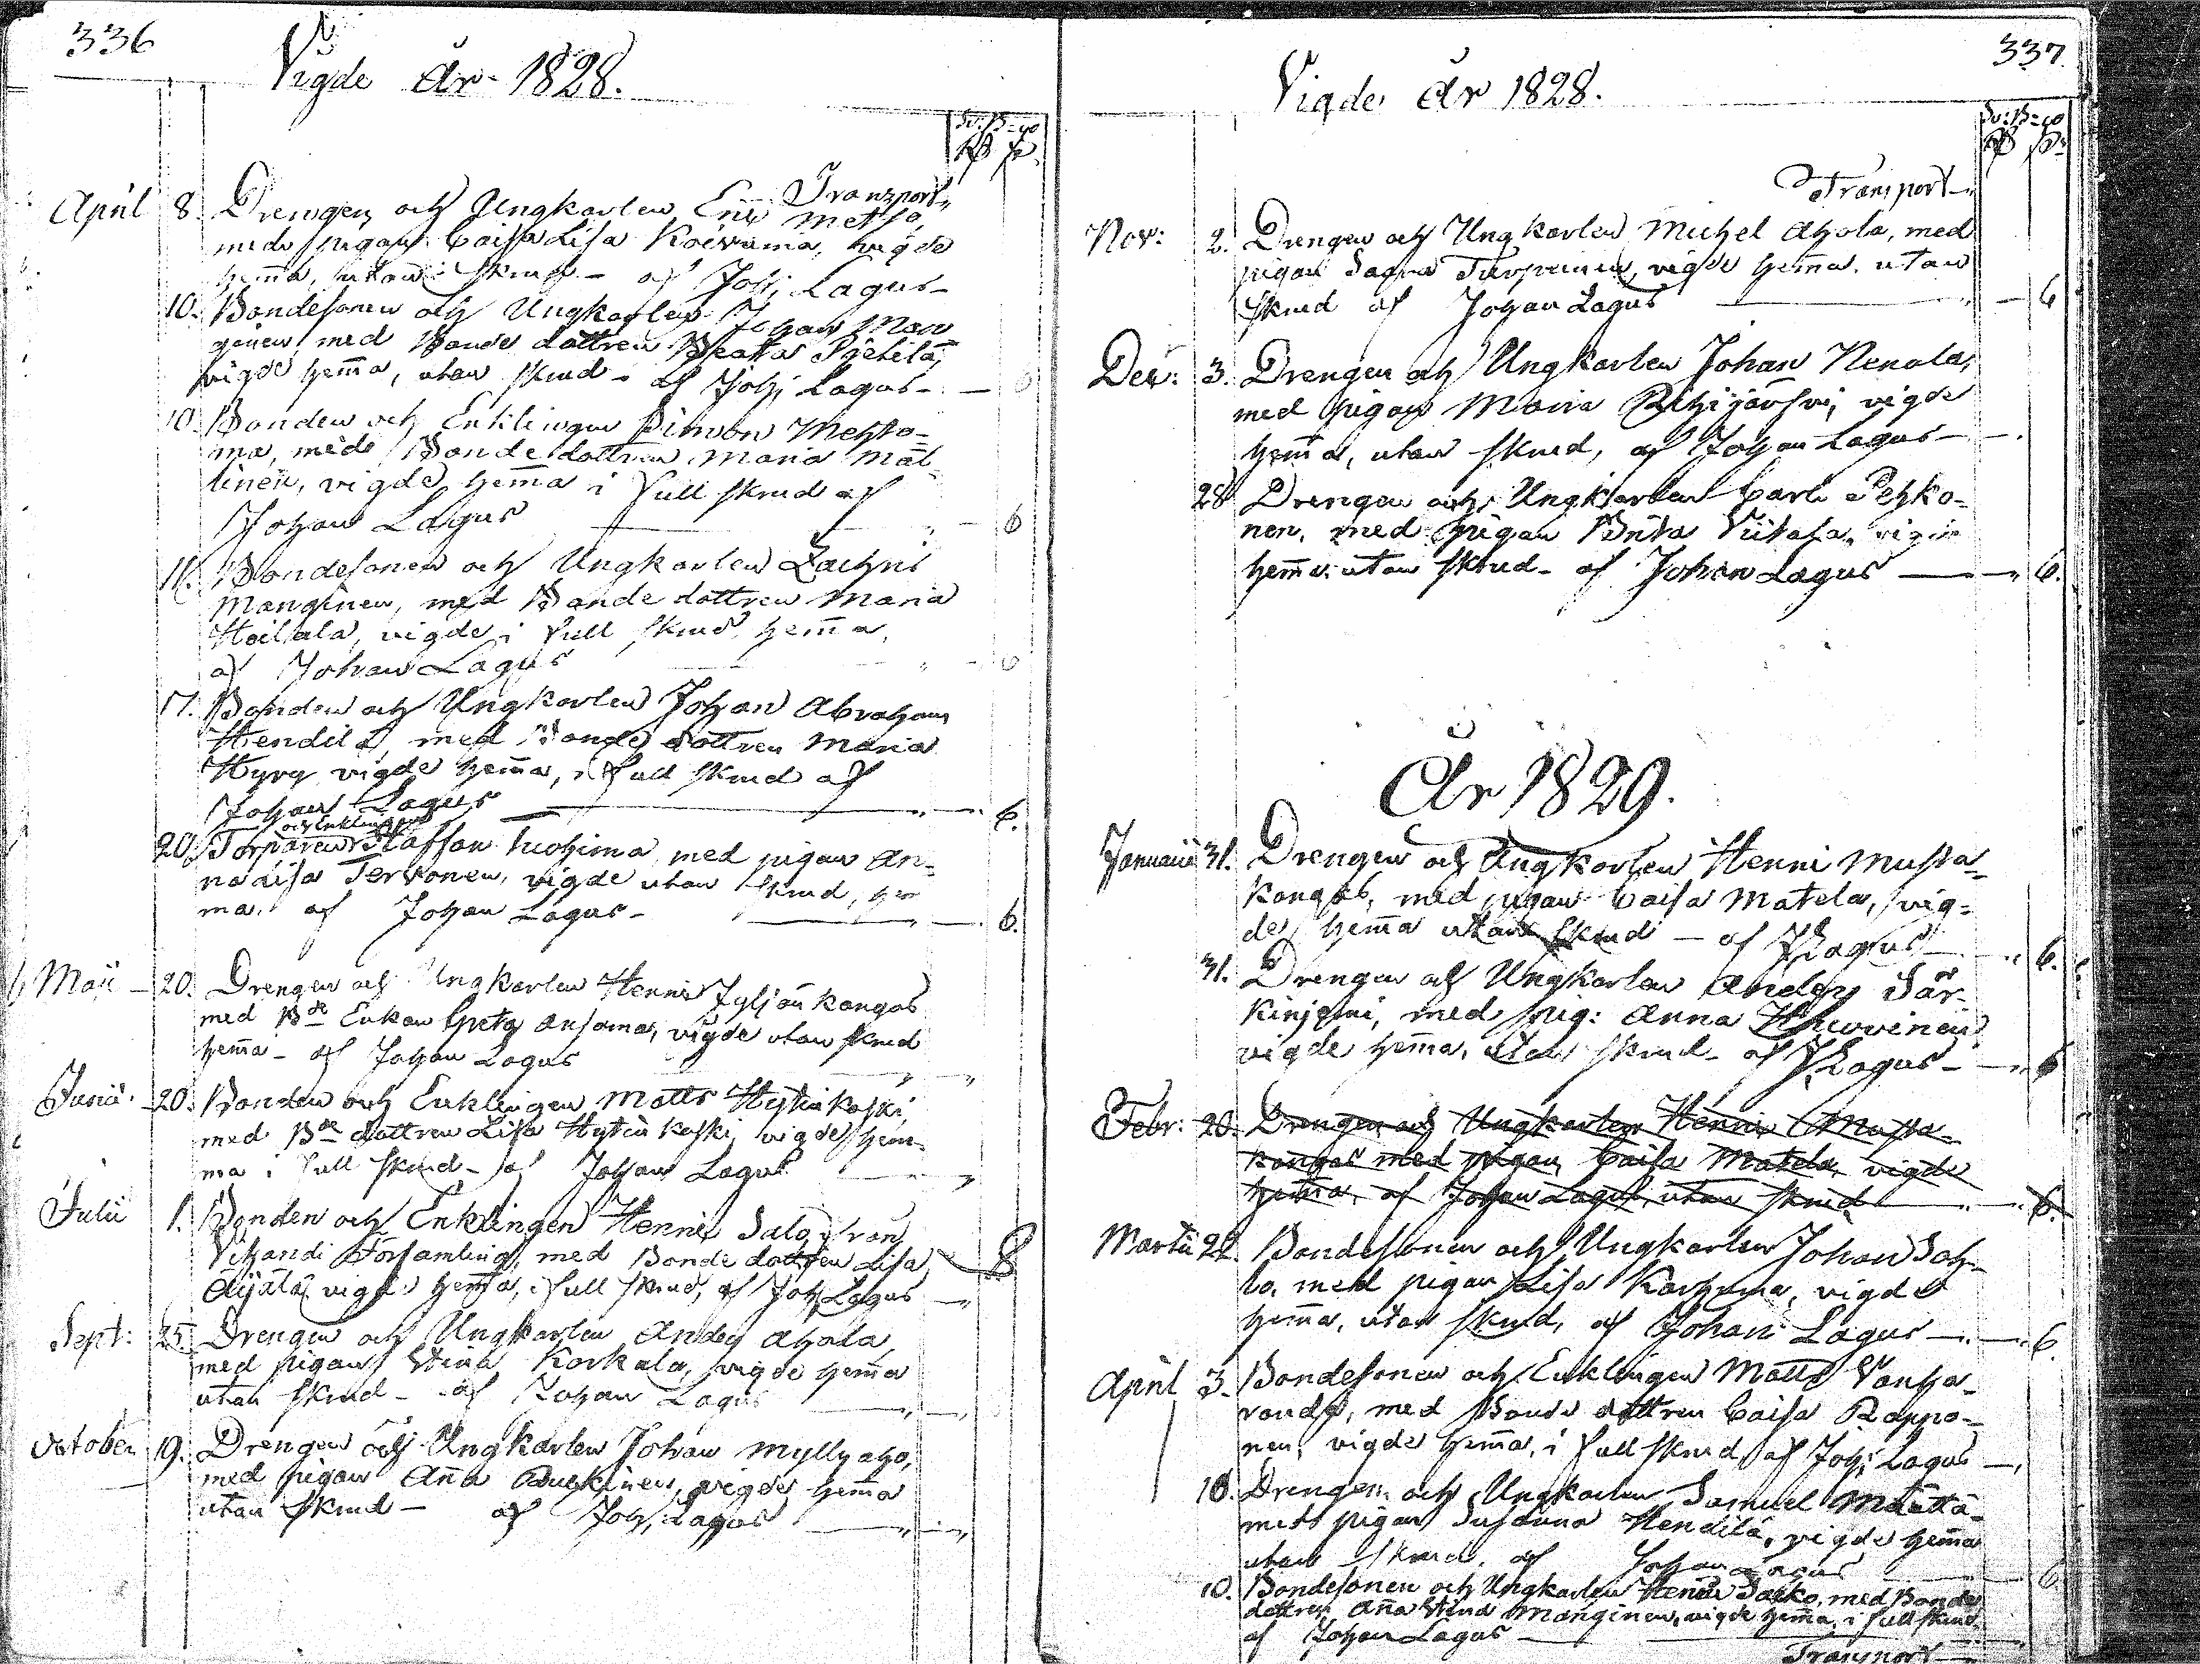 336
Vigde År 1828.
Sv: B=co
Transport
April 8. Drengen och Ungkarlen Eric Metso,
med pigan Caisa Lisa Koivuma, vigde
hem̅a, utan skrud - af Joh: Lagus -
10. Bondesonen och Ungkarlen Johan Man
ginen, med Bonde dottren Beata Pjetilä,
vigde hem̅a, utan skrud - af Joh: Lagus - — 6
10. Bonden och Enklingen Simon Mehto=
ma, med Bonde dottren Maria Mäl
linen, vigde hem̅a i full skrud af
Johan Lagus — 6
11. Bondesonen och Ungkarlen Zachris
Manginen, med Bonde dottren Maria
Hoikala, vigde i full skrud hem̅a,
af Johan Lagus 6
17. Bonden och Ungkarlen Johan Abraham
Hendilä, med Bonde dottren Maria
Hyry vigde hem̅a, i full skrud af
Johan Lagus — 6.
och Enklingen
20. Torparen Staffan Tuohima, med pigan An=
na Lisa Tervonen, vigde utan skrud, hem
ma, af Johan Lagus - — 6.
Maji 20. Drengen och Ungkarlen Henric kangas
med B:de Enkan Greta Ansama, vigde utan skrud
hem̅a - af Johan Lagus
Junii 20. Bonden och Enklingen Matts Hytinkoski
med B:de dottren Lisa Hytinkoski vigde hem=
ma i full skrud - af Johan Lagus
Julii 1. Bonden och Enklingen Henric Salo, från
Vihandi Församling, med Bonde dottren Lisa
Äijälä vigde hem̅a, i full skrud, af Joh: Lagus
Sept: 25. Drengen och Ungkarlen Anders Ahola,
med pigan Stina Korkala, vigde hem̅a
utan skrud - af Johan Lagus
October 19. Drengen och Ungkarlen Johan Myllyaho,
med pigan An̅a vigde hem̅a
utan skrud - af Joh: Lagus
337
Vigde År 1828.
Sv: B=co
Transport
Nov: 2. Drengen och Ungkarlen Michel Ahola, med
pigan Sagra Turpeinen, vigde hem̅a, utan
skrud af Johan Lagus — 6
Dec: 3. Drengen och Ungkarlen Johan Nenola,
med pigan Maria Pihijärfvi, vigde
hem̅a, utan skrud, af Johan Lagus -
28. Drengen och Ungkarlen Carl Pehko=
nen, med pigan Brita Viitasa, vigde
hem̅a utan skrud - af Johan Lagus — 6.
År 1829.
Januarii 31. Drengen och Ungkarlen Henric Musta=
kangas, med pigan Caisa Matela, vig=
de hem̅a utan skrud - af J Lagus 6.
31. Drengen och Ungkarlen Anders Sär=
kinjemi, med pig: Anna
vigde hem̅a, utan skrud - af J Lagus - 6
Febr: 20. Drengen och Ungkarlen Henric Musta=
kangas med pigan Caisa Matela, vigde
hem̅a, af Johan Lagus, utan skrud 6.
Martii 22. Bondesonen och Ungkarlen Johan Sah=
lo, med pigan Lisa Karhuma, vigde
hem̅a, utan skrud, af Johan Lagus — 6.
April 3. Bondesonen och Enklingen Matts Vanha=
randa, med Bonde dottren Caisa Rappo=
nen, vigde hem̅a, i full skrud af Joh: Lagus —
10. Drengen och Ungkarlen Samuel Määttä=
med pigan Susanna Hendilä, vigde hem̅a
utan skrud, af Johan Lagus 6
10. Bondesonen och Ungkarlen Henric Sarko, med Bonde
dottren An̅a Stina Manginen, vigde hem̅a, i full skrud
af Johan Lagus —
Transport